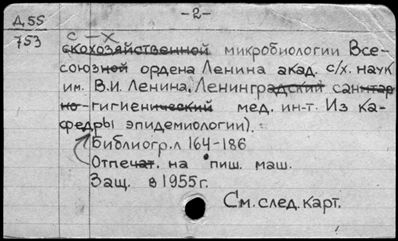 -2-
Д.55
753
с-х
скохозяйственной микробиологии Все-
союзной ордена Ленина акад. с/х. наук
им. В.И. Ленина, Ленинградский санитар
но-гигиенический мед. ин-т. Из ка-
федры эпидемиологии).
Библиогр. л 164-186
Отпечат. на пиш. маш.
Защ. в 1955г.
См. след. карт.